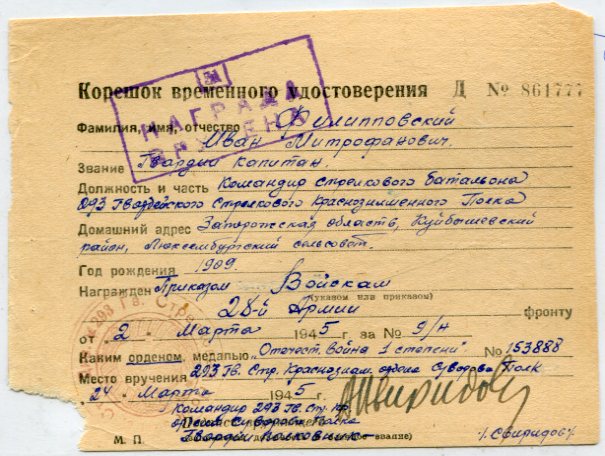 51
НАГРАДА
ВРУЧЕНА
Корешок временного удостоверения Д № 861777
Фамилия, имя, отчество Филипповский
Иван Митрофанович.
Звание Гвардии капитан.
Должность и часть Командир стрелкового батальона
293 Гвардейского Стрелкового Краснознаменного Полка
Домашний адрес Запорожская область, Куйбышевский
район, Люксембургский сельсовет.
Год рождения 1909.
Награжден Приказом Войскам
(указом или приказом)
28-й Армии фронту
от „2" Марта 1945 г. за № 9/н
Каким орденом, медалью „Отечест. Война 1 степени" № 153888
Место вручения 293 Гв. Стр. Краснознам. ордена Суворова Полк
„24" Марта 1945 г.
Командир 293 Гв. Стр.
ордена Суворова Полка
Гвардии Полковник
М. П. звание)
/Свиридов/